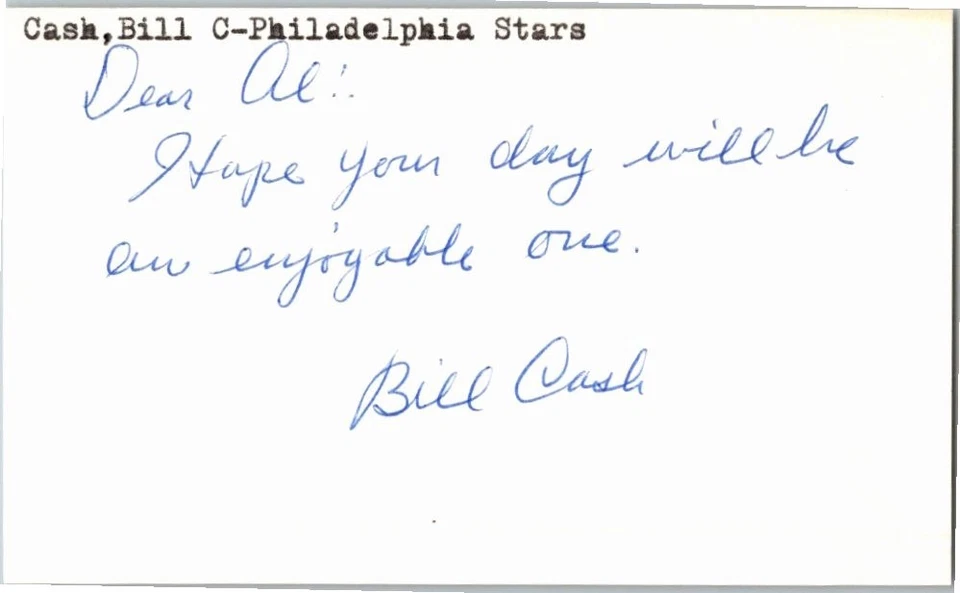 Cash,Bill C-Philadelphia Stars
Dear Al:
Hope your day will be
an enjoyable one.
Bill Cash